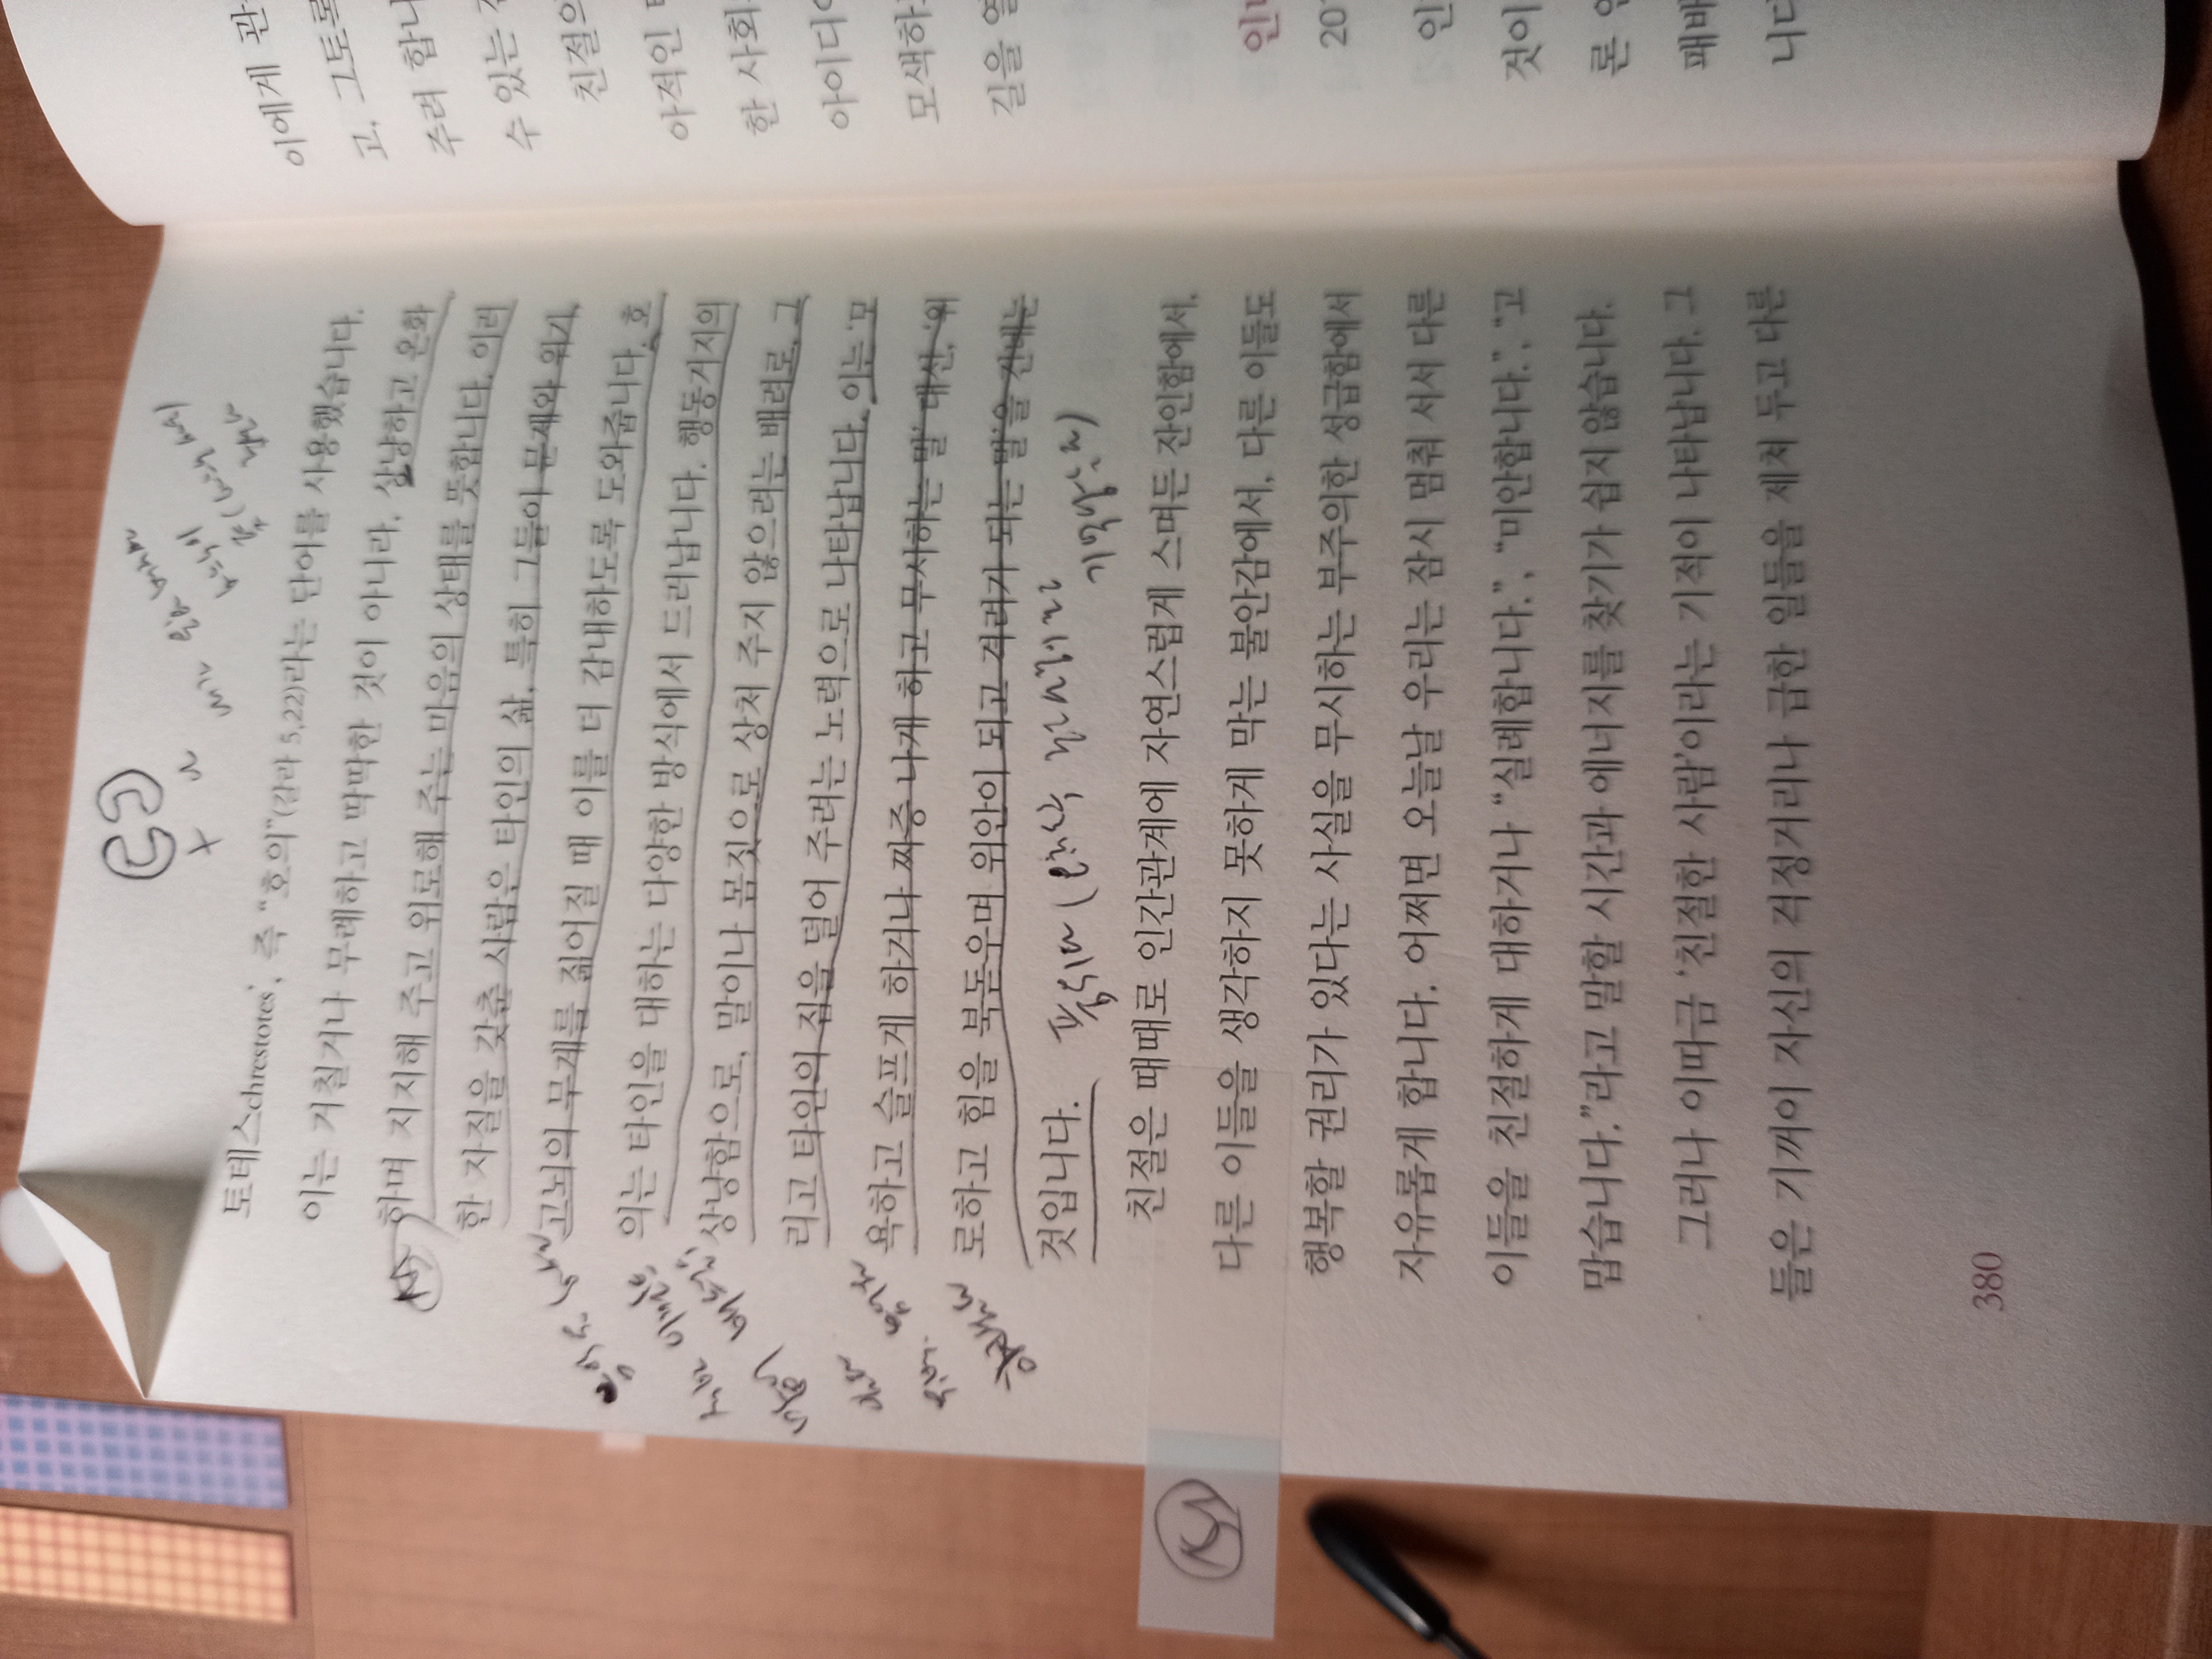 토테스chrestotes', 즉 "호의"(갈라 5,22)라는 단어를 사용했습니다.
이는 거칠거나 무례하고 딱딱한 것이 아니라, 상냥하고 온화
하며 지지해 주고 위로해 주는 마음의 상태를 뜻합니다. 이러
한 자질을 갖춘 사람은 타인의 삶, 특히 그들이 문제와 위기,
고뇌의 무게를 짊어질 때 이를 더 감내하도록 도와줍니다. 호
의는 타인을 대하는 다양한 방식에서 드러납니다. 행동거지의
상냥함으로, 말이나 몸짓으로 상처 주지 않으려는 배려로, 그
리고 타인의 짐을 덜어 주려는 노력으로 나타납니다. 이는 '모
욕하고 슬프게 하거나 짜증 나게 하고 무시하는 말' 대신, '위
로하고 힘을 북돋우며 위안이 되고 격려가 되는 말'을 건네는
것입니다.
친절은 때때로 인간관계에 자연스럽게 스며든 잔인함에서,
다른 이들을 생각하지 못하게 막는 불안감에서, 다른 이들도
행복할 권리가 있다는 사실을 무시하는 부주의한 성급함에서
자유롭게 합니다. 어쩌면 오늘날 우리는 잠시 멈춰 서서 다른
이들을 친절하게 대하거나 "실례합니다.", "미안합니다.", "고
맙습니다."라고 말할 시간과 에너지를 찾기가 쉽지 않습니다.
그러나 이따금 '친절한 사람'이라는 기적이 나타납니다. 그
들은 기꺼이 자신의 걱정거리나 급한 일들을 제쳐 두고 다른
380
이에게 관
고, 그토록
주려 합니
수 있는
친절의
아적인
한 사회
아이디어
모색하
길을 열
인
201
인
것이
론
패배
니다